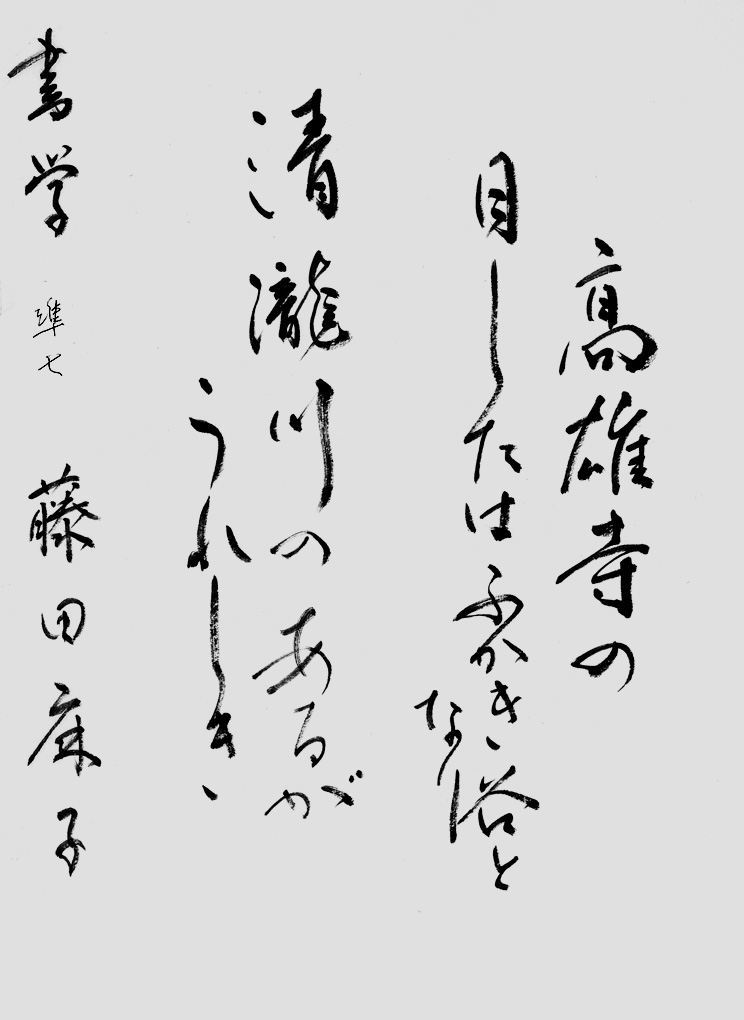 高雄寺の
目したはふかき谷と
なり
清瀧川のあるが
うれしき
書学 準七 藤田麻子